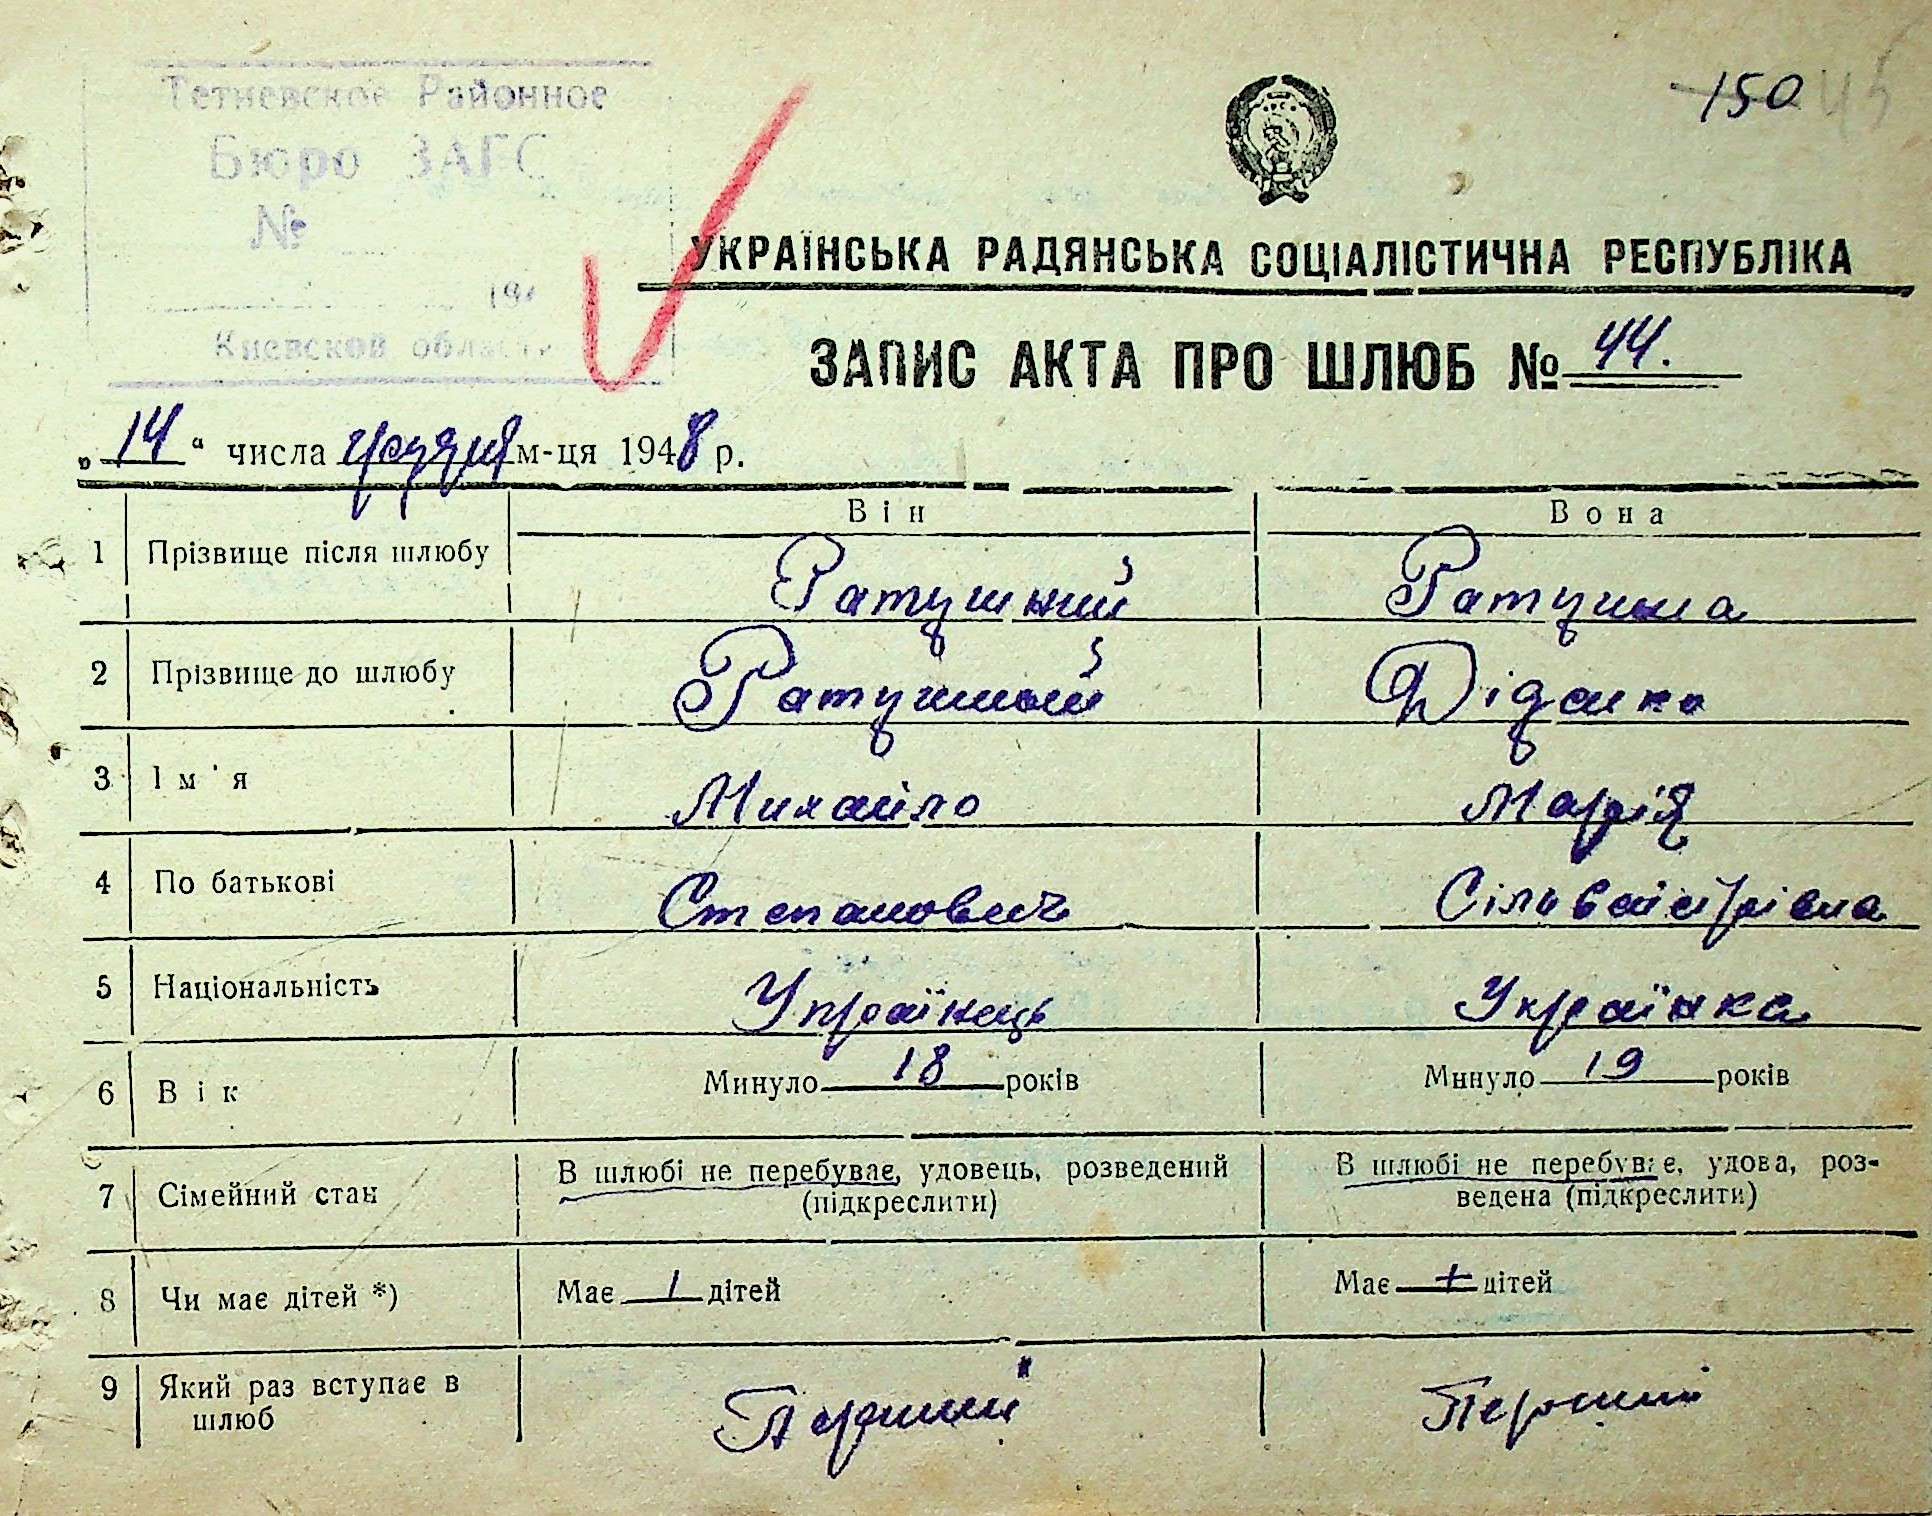 Тетиевское Районное
Бюро ЗАГС
№
194
Киевской области
150 45
УКРАЇНСЬКА РАДЯНСЬКА СОЦІАЛІСТИЧНА РЕСПУБЛІКА
ЗАПИС АКТА ПРО ШЛЮБ № 44.
„14“ числа грудня м-ця 1948 р.
Він Вона
1 Прізвище після шлюбу Ратушний Ратушна
2 Прізвище до шлюбу Ратушный Діденко
3 Ім'я Михайло Марія
4 По батькові Степанович Сільвейстрівна
5 Національність Українець Українка
6 Вік Минуло 18 років Минуло 19 років
7 Сімейний стан В шлюбі не перебуває, удовець, розведений (підкреслити) В шлюбі не перебуває, удова, роз-
ведена (підкреслити)
8 Чи має дітей *) Має / дітей Має + дітей
9 Який раз вступає в
шлюб Перший Перший